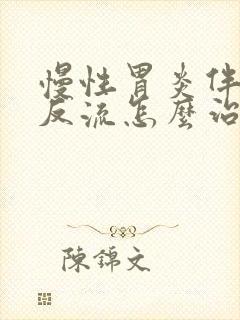 慢性胃炎伴
反流怎麼治
陳錦文